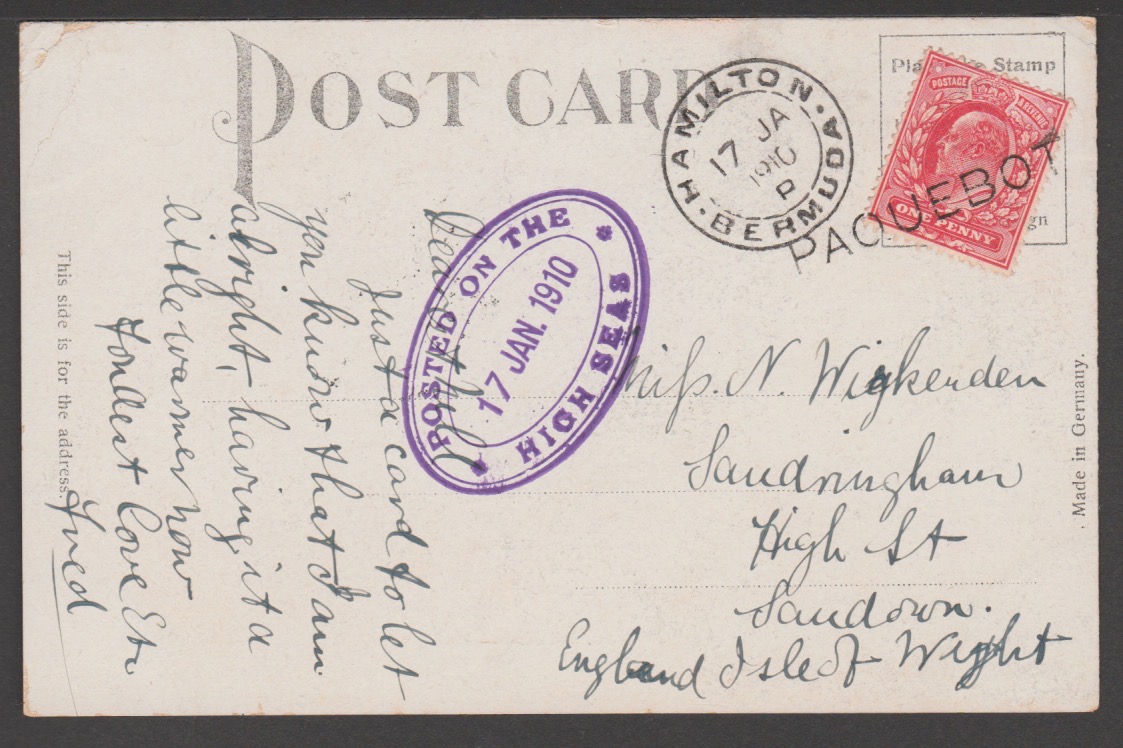 POST CARD
HAMILTON. BERMUDA.
17 JA
1910
P
Stamp
POSTAGE & REVENUE
ONE PENNY
PAQUEBOT
POSTED ON THE HIGH SEAS
17 JAN. 1910
Just a card to let
you know that I am
alright, having it a
little warmer now
Fondest Love Etc
Fred
Miss. N. Wickenden
Sandringham
High St
Sandown.
England Isle of Wight
This side is for the address.
Made in Germany.